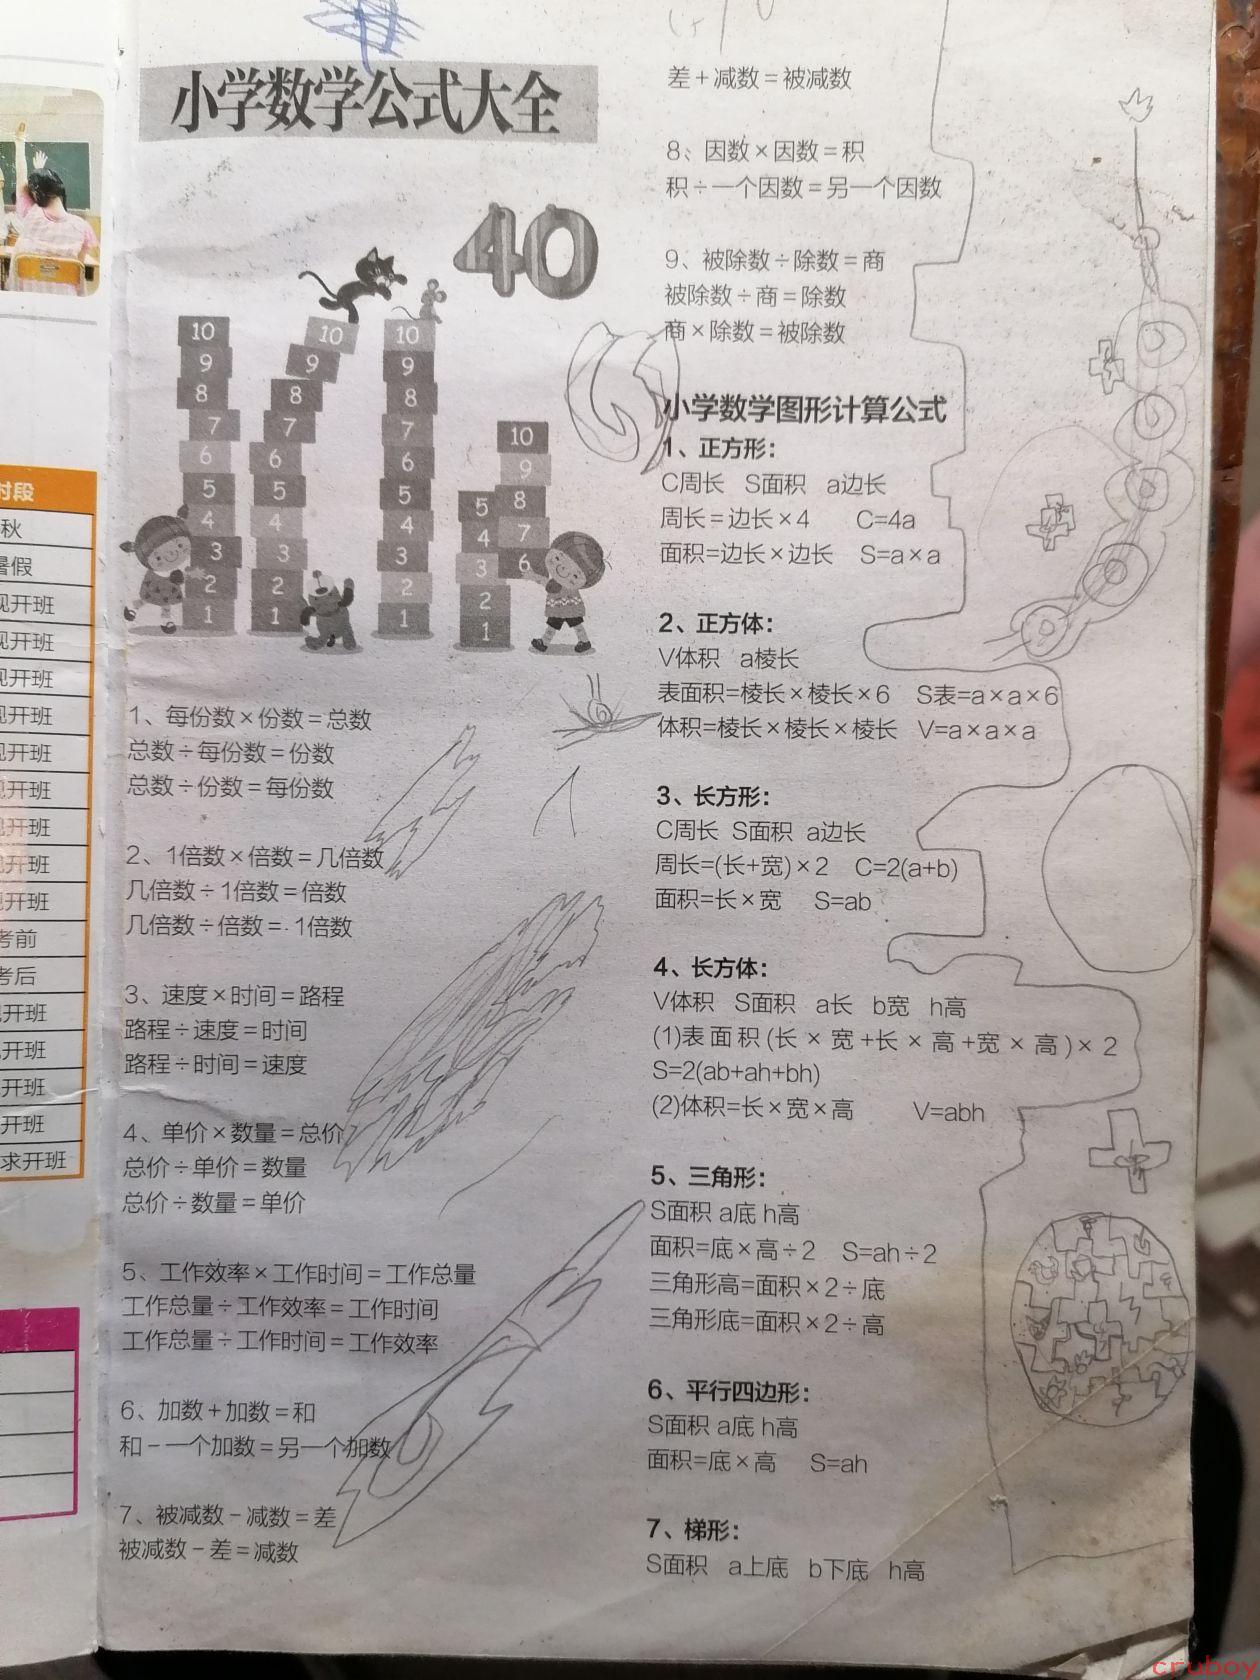 小学数学公式大全
40
10
9
8
7
6
5
4
3
2
1
10
9
8
7
6
5
4
3
2
1
10
9
8
7
6
5
4
3
2
1
10
9
8
7
6
5
4
3
2
1
1、每份数×份数=总数
总数÷每份数=份数
总数÷份数=每份数
2、1倍数×倍数=几倍数
几倍数÷1倍数=倍数
几倍数÷倍数=1倍数
3、速度×时间=路程
路程÷速度=时间
路程÷时间=速度
4、单价×数量=总价
总价÷单价=数量
总价÷数量=单价
5、工作效率×工作时间=工作总量
工作总量÷工作效率=工作时间
工作总量÷工作时间=工作效率
6、加数+加数=和
和-一个加数=另一个加数
7、被减数-减数=差
被减数-差=减数
差+减数=被减数
8、因数×因数=积
积÷一个因数=另一个因数
9、被除数÷除数=商
被除数÷商=除数
商×除数=被除数
小学数学图形计算公式
1、正方形：
C周长 S面积 a边长
周长=边长×4 C=4a
面积=边长×边长 S=a×a
2、正方体：
V体积 a棱长
表面积=棱长×棱长×6 S表=a×a×6
体积=棱长×棱长×棱长 V=a×a×a
3、长方形：
C周长 S面积 a边长
周长=(长+宽)×2 C=2(a+b)
面积=长×宽 S=ab
4、长方体：
V体积 S面积 a长 b宽 h高
(1)表面积(长×宽+长×高+宽×高)×2
S=2(ab+ah+bh)
(2)体积=长×宽×高 V=abh
5、三角形：
S面积 a底 h高
面积=底×高÷2 S=ah÷2
三角形高=面积×2÷底
三角形底=面积×2÷高
6、平行四边形：
S面积 a底 h高
面积=底×高 S=ah
7、梯形：
S面积 a上底 b下底 h高
时段
秋
暑假
现开班
现开班
现开班
现开班
现开班
现开班
现开班
现开班
现开班
考前
考后
现开班
现开班
开班
开班
求开班
cruboy